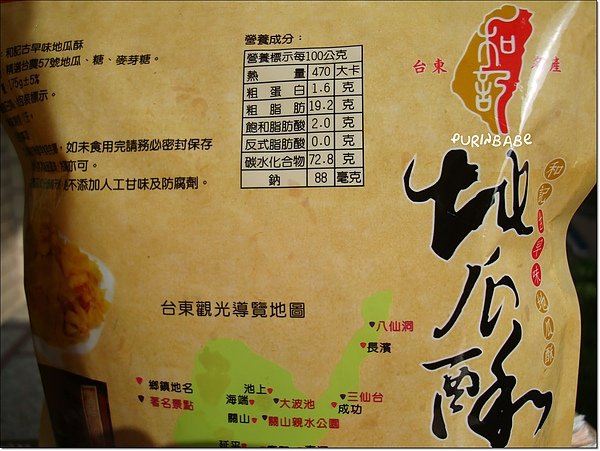 和記古早味地瓜酥
精選台農57號地瓜、糖、麥芽糖。
175g±5%
包裝標示。
如未食用完請務必密封保存
亦可。
不添加人工甘味及防腐劑。
營養成分：
營養標示每100公克
熱量 470 大卡
粗蛋白 1.6 克
粗脂肪 19.2 克
飽和脂肪酸 2.0 克
反式脂肪酸 0.0 克
碳水化合物 72.8 克
鈉 88 毫克
台東
和記
產
PURINBABE
地瓜酥
和記古早味地瓜酥
台東觀光導覽地圖
八仙洞
長濱
鄉鎮地名
著名景點
池上
海端
大波池
三仙台
成功
關山
關山親水公園
延平